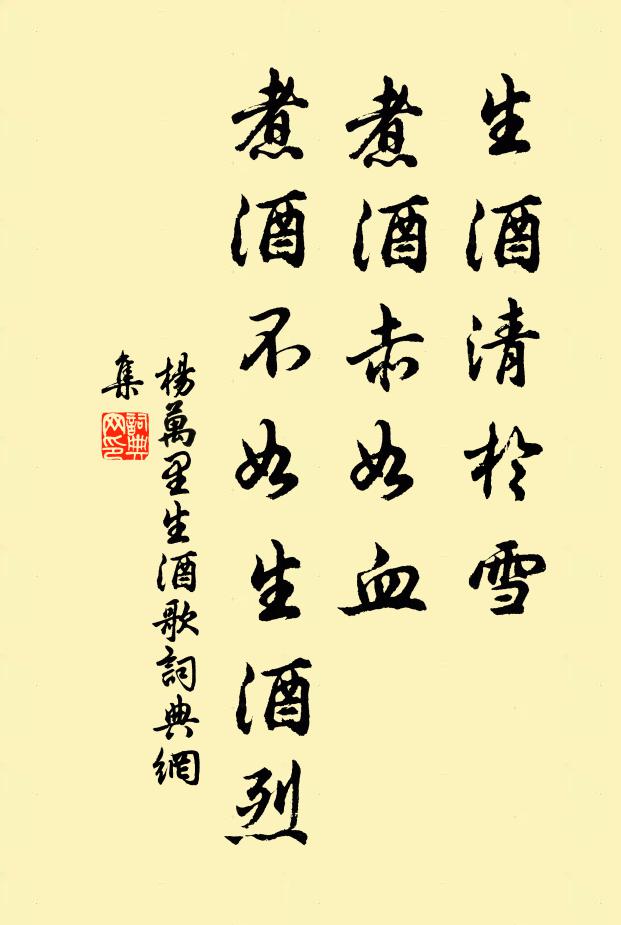 生酒清於雪
煮酒赤如血
煮酒不如生酒烈
楊萬里生酒歌詞典網
集
詞典
网印